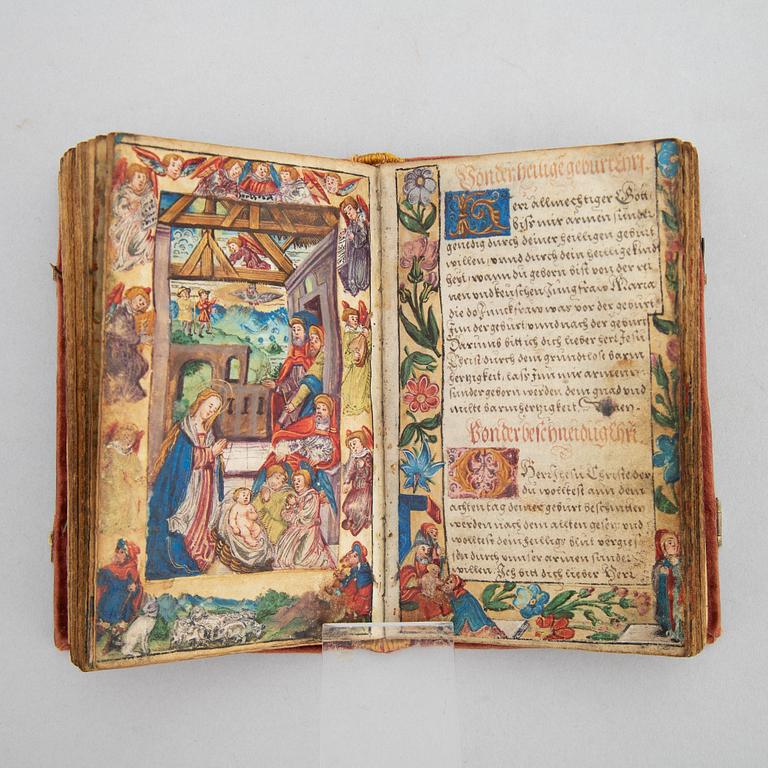 Von der heilige geburt Chri.
Herr allmechtiger Gott
bis mir armen sünder
genedig durch deiner heiligen geburt
willen, vnnd durch dein heilige kind
heyt, wann du geborn bist von der rei
nen vnd keüschen Jungkfraw Maria
die do Junckfraw was vor der geburt
Jnn der geburt vnnd nach der geburt
Darumb bitt ich dich lieber herr Jesu
Christ durch dein grundtlose barm
hertzigkeit, lass Jnn mir armen
sunder geborn werden dein gnad vnd
milt barmhertzigkeit. Amen.
Von der beschneidūg Chri
O Herr Jhesu Christe der
du wolltest ann dem
achten tag deiner geburt beschnitten
werden nach dem allten gesetz vnd
wolltest dein heiligs blut vergies
sen durch vnnser armen sünder
willen. Ich bitt dich lieber Herr